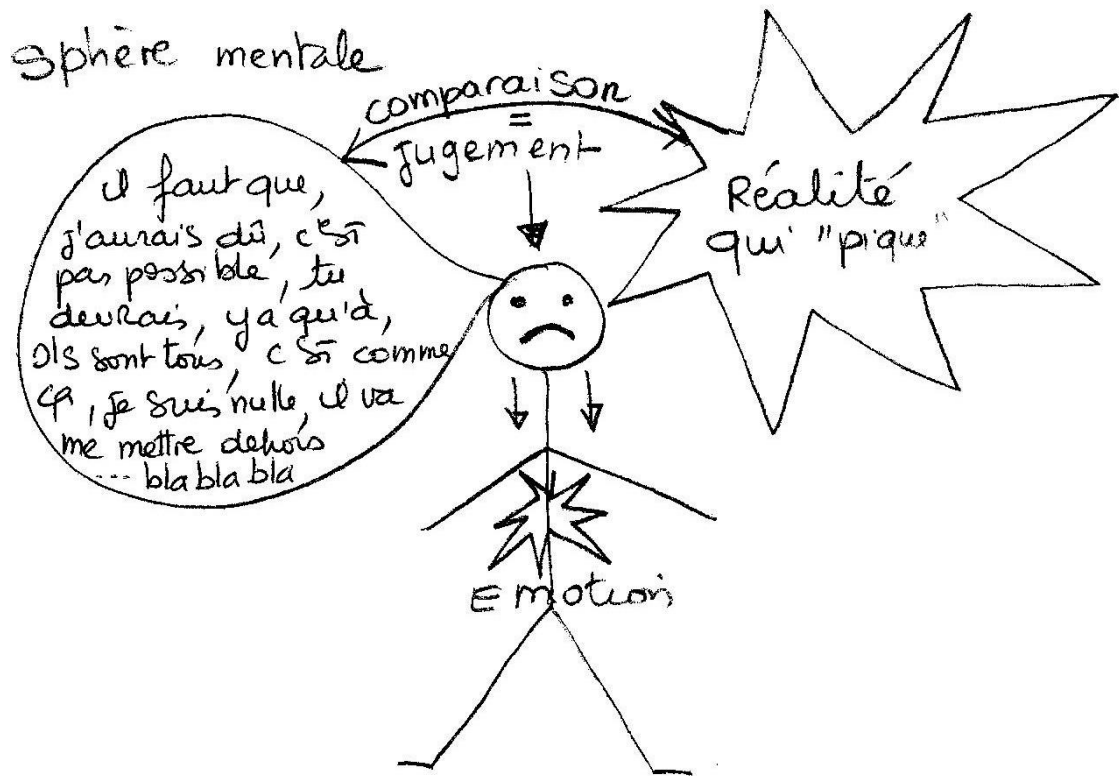 Sphère mentale
comparaison
=
jugement
il faut que,
j'aurais dû, c'st
pas possible, tu
devrais, y a qu'à,
ils sont tous, c'st comme
ça, je suis nulle, il va
me mettre dehors
... bla bla bla
Réalité
qui "pique"
Emotion